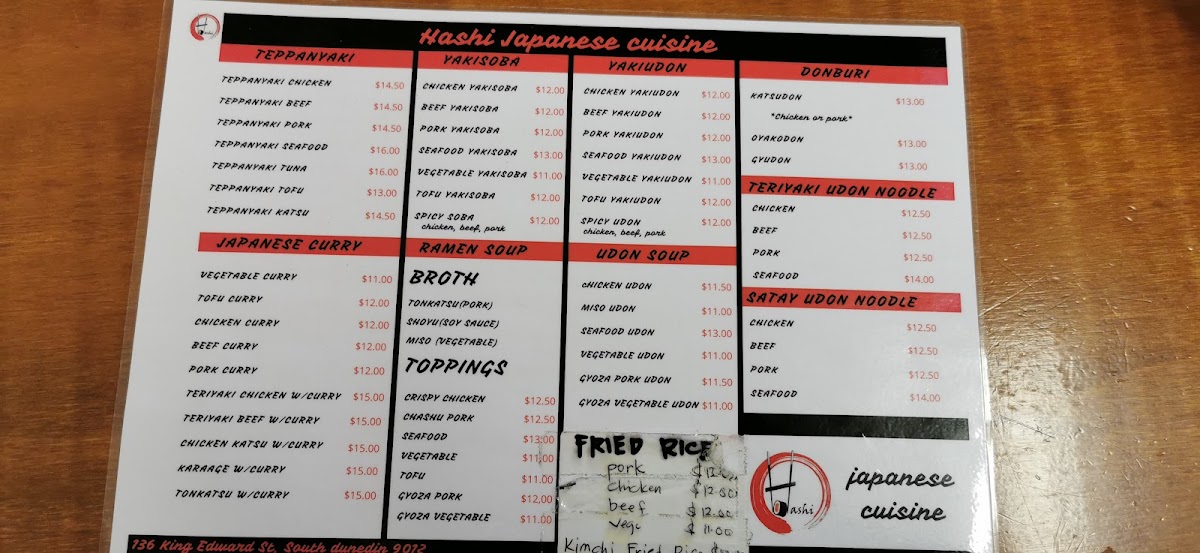 Hashi Japanese cuisine
TEPPANYAKI
TEPPANYAKI CHICKEN $14.50
TEPPANYAKI BEEF $14.50
TEPPANYAKI PORK $14.50
TEPPANYAKI SEAFOOD $16.00
TEPPANYAKI TUNA $16.00
TEPPANYAKI TOFU $13.00
TEPPANYAKI KATSU $14.50
YAKISOBA
CHICKEN YAKISOBA $12.00
BEEF YAKISOBA $12.00
PORK YAKISOBA $12.00
SEAFOOD YAKISOBA $13.00
VEGETABLE YAKISOBA $11.00
TOFU YAKISOBA $12.00
SPICY SOBA $12.00
chicken, beef, pork
YAKIUDON
CHICKEN YAKIUDON $12.00
BEEF YAKIUDON $12.00
PORK YAKIUDON $12.00
SEAFOOD YAKIUDON $13.00
VEGETABLE YAKIUDON $11.00
TOFU YAKIUDON $12.00
SPICY UDON $12.00
chicken, beef, pork
DONBURI
KATSUDON $13.00
*Chicken or pork*
OYAKODON $13.00
GYUDON $13.00
TERIYAKI UDON NOODLE
CHICKEN $12.50
BEEF $12.50
PORK $12.50
SEAFOOD $14.00
SATAY UDON NOODLE
CHICKEN $12.50
BEEF $12.50
PORK $12.50
SEAFOOD $14.00
JAPANESE CURRY
VEGETABLE CURRY $11.00
TOFU CURRY $12.00
CHICKEN CURRY $12.00
BEEF CURRY $12.00
PORK CURRY $12.00
TERIYAKI CHICKEN W/CURRY $15.00
TERIYAKI BEEF W/CURRY $15.00
CHICKEN KATSU W/CURRY $15.00
KARAAGE W/CURRY $15.00
TONKATSU W/CURRY $15.00
RAMEN SOUP
BROTH
TONKATSU(PORK)
SHOYU(SOY SAUCE)
MISO (VEGETABLE)
TOPPINGS
CRISPY CHICKEN $12.50
CHASHU PORK $12.50
SEAFOOD $13.00
VEGETABLE $11.00
TOFU $11.00
GYOZA PORK $12.00
GYOZA VEGETABLE $11.00
UDON SOUP
CHICKEN UDON $11.50
MISO UDON $11.00
SEAFOOD UDON $13.00
VEGETABLE UDON $11.00
GYOZA PORK UDON $11.50
GYOZA VEGETABLE UDON $11.00
FRIED RICE
pork
chicken $12.00
beef $12.00
vege $11.00
Kimchi Fried Rice
Hashi
japanese
cuisine
136 King Edward St, South dunedin 9012